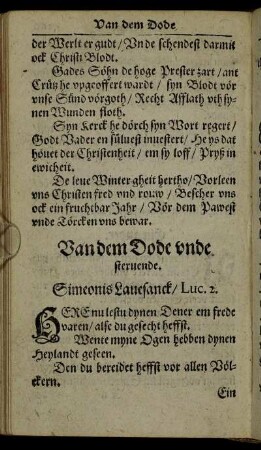 Van dem Dode
der Werlt er gudt / Vnde schendest darmit
ock Christi Blodt.
Gades Söhn de hoge Prester zart / ant
Crütz he vpgeoffert wardt / syn Blodt vör
vnse Sünd vörgoth / Recht Afflath vth sy-
nen Wunden floth.
Syn Kerck he dörch syn Wort regert /
Godt Vader en süluest inuestert / He ys dat
höuet der Christenheit / em sy loff / Prysz in
ewicheit.
De leue Winter gheit hertho / Vorleen
vns Christen fred vnd rouw / Bescher vns
ock ein fruchtbar Jahr / Vör dem Pawest
vnde Törcken vns bewar.
Van dem Dode vnde
steruende.
Simeonis Lauesanck / Luc. 2.
HERE nu lestu dynen Dener em frede
varen / alse du gesecht heffst.
Wente myne Ogen hebben dynen
Heylandt geseen.
Den du bereidet heffst vor allen Völ-
ckern.
Ein